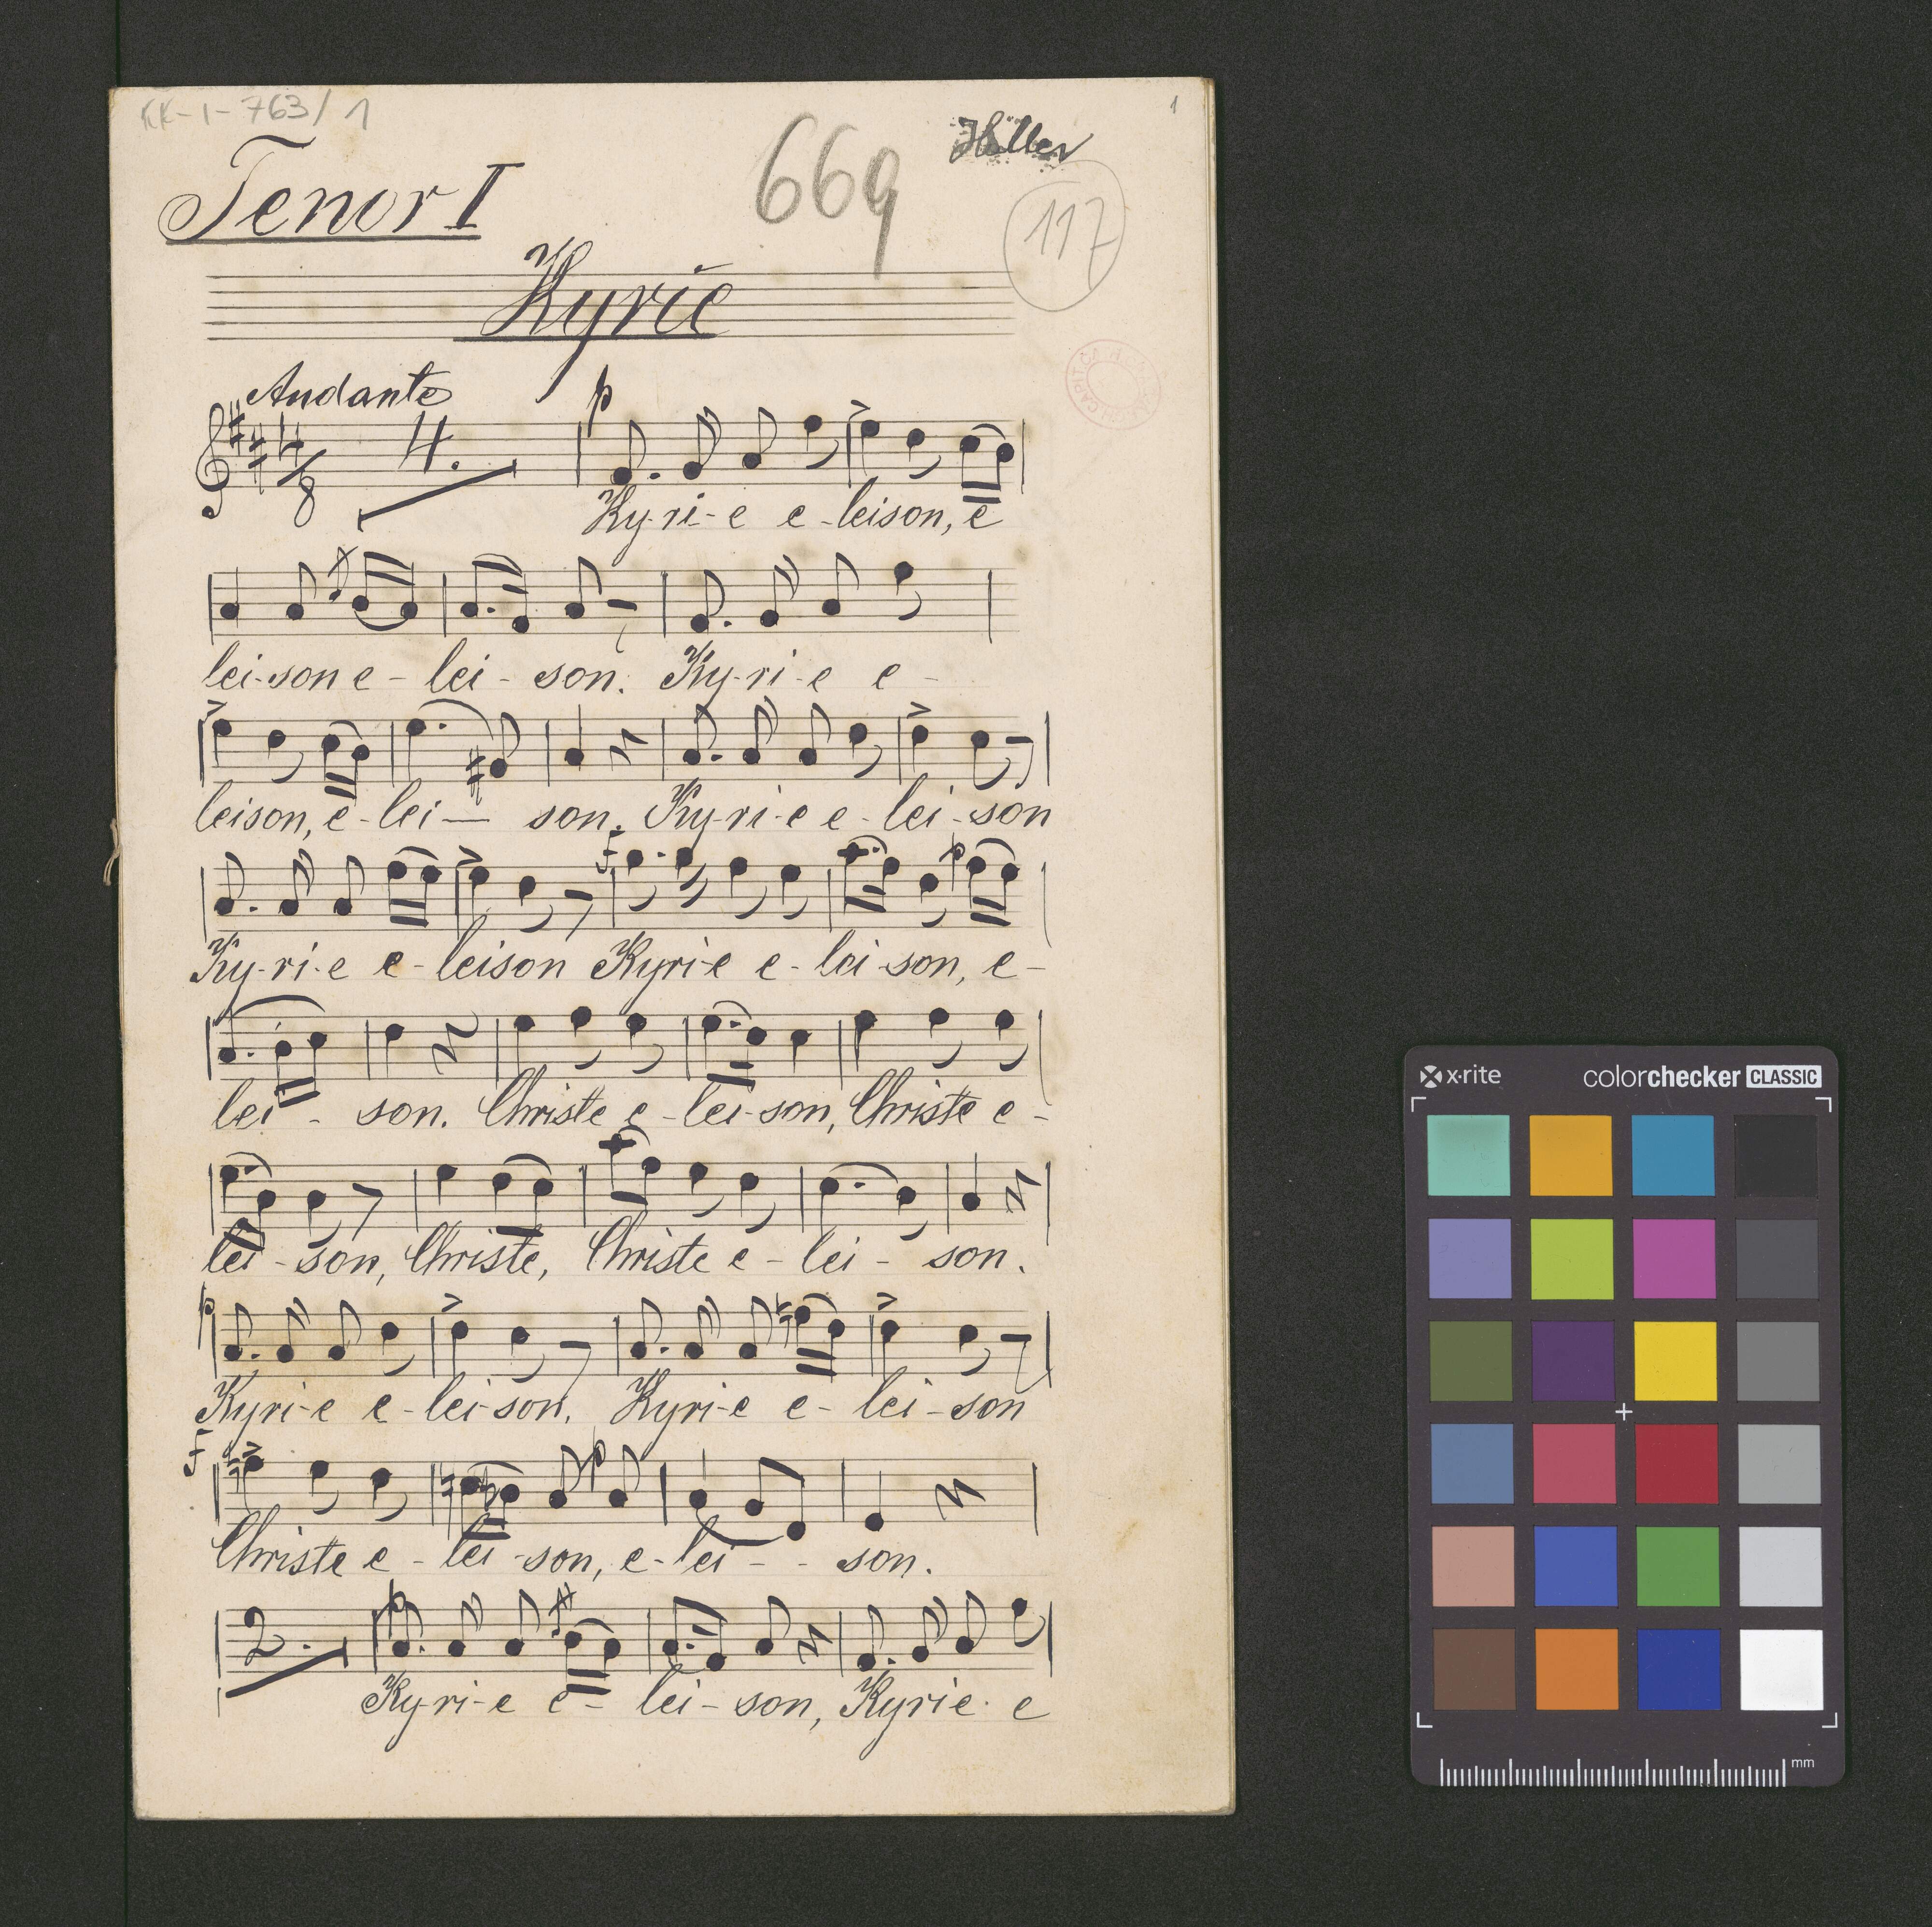 KK-I-763/1
1
Hiller
669
Tenor I
117
Kyrie
Andante
4/8 4. p
Ky-ri-e e-leison, e
lei-son e-lei-son. Ky-ri-e e-
leison, e-lei— son. Ky-ri-e e-lei-son
f p
Ky-ri-e e-leison Kyri-e e-lei-son, e-
lei- son. Christe e-lei-son, Christe e-
lei-son, Christe, Christe e-lei- son.
p
Kyri-e e-lei-son, Kyri-e e-lei-son
f p
Christe e-lei-son, e-lei-- son.
2. p
Ky-ri-e e-lei-son, Kyrie e
x-rite colorchecker CLASSIC
mm